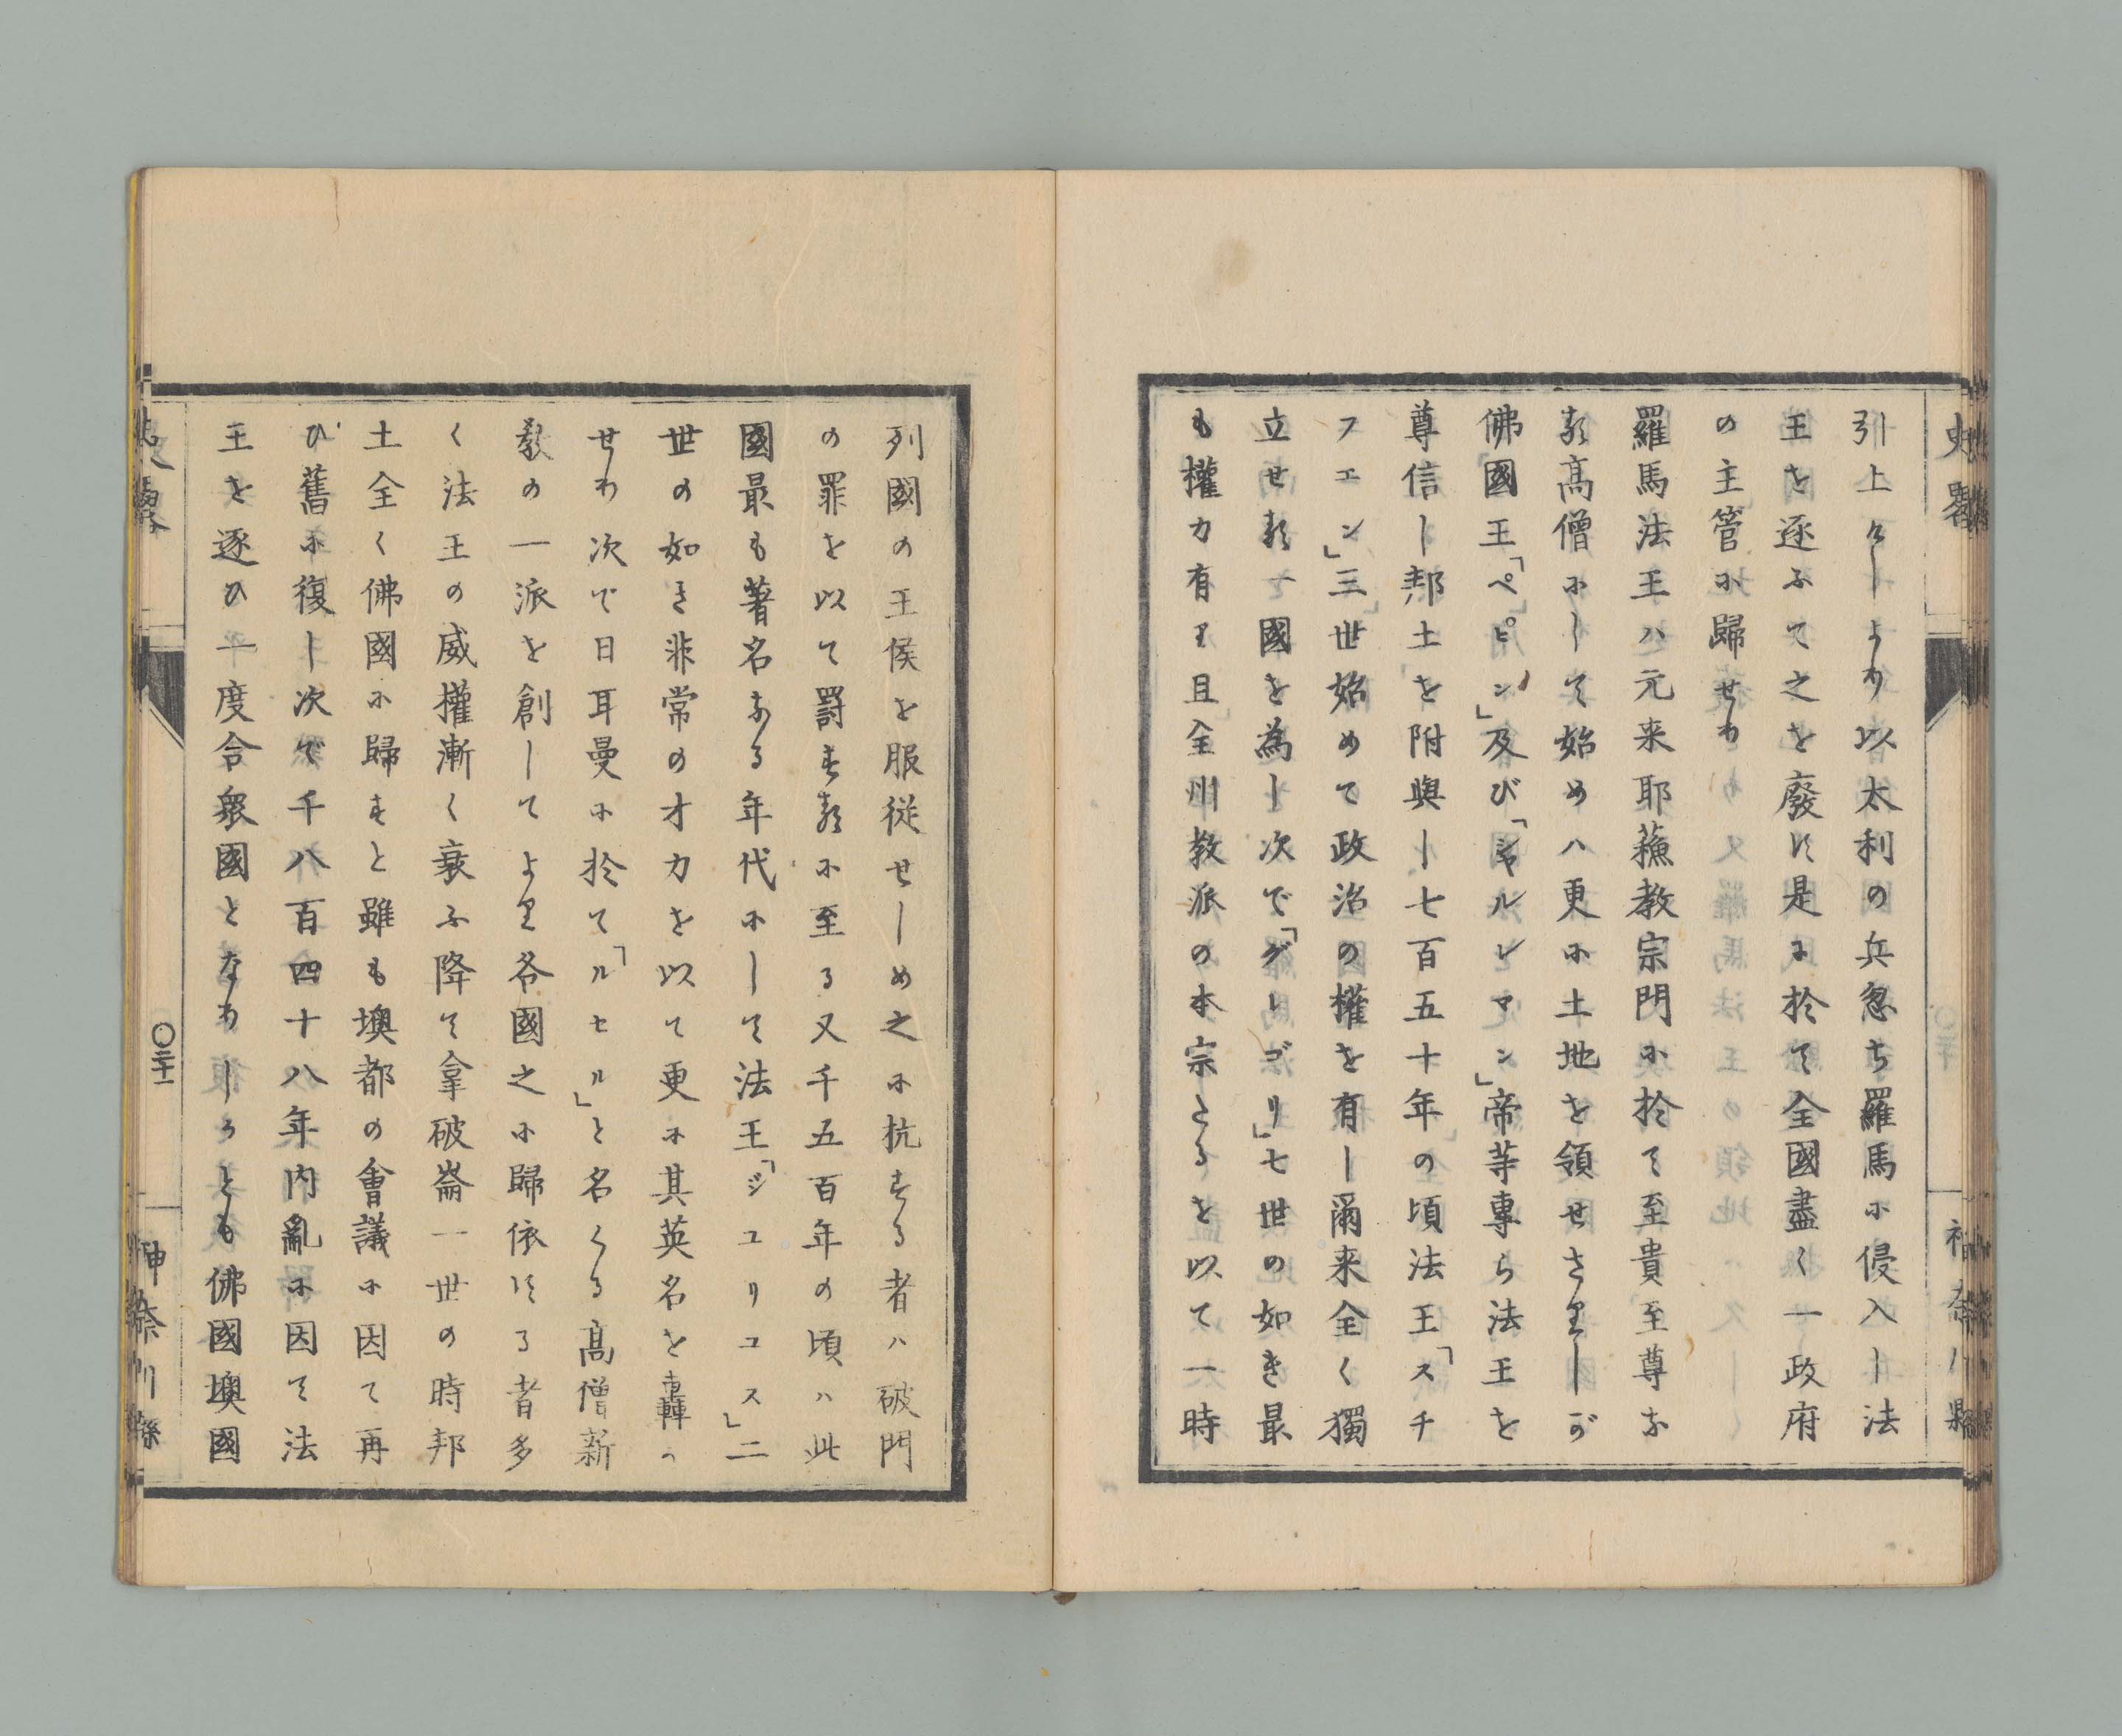 引上けしより以太利の兵忽ち羅馬に侵入し法
王を逐ふて之を廢す是に於て全國盡く一政府
の主管に歸せり
羅馬法王ハ元来耶蘓教宗門に於て至貴至尊な
る高僧にして始めハ更に土地を領せさりしが
佛國王「ペピン」及び「シャルレマン」帝等專ら法王を
尊信し邦土を附與し七百五十年の頃法王「スチ
フエン」三世始めて政治の權を有し爾来全く獨
立せる一國を為し次で「グレゴリ」七世の如き最
も權力有り且全州教派の本宗たるを以て一時
列國の王侯を服従せしめ之に抗する者ハ破門
の罪を以て罰する に至る又千五百年の頃ハ此
國最も著名なる年代にして法王「ジユリユス」二
世の如き非常の才力を以て更に其英名を轟か
せり次で日耳曼に於て「ルセル」と名くる高僧新
教の一派を創してより各國之に歸依する者多
く法王の威權漸く衰ふ降て拿破崙一世の時邦
土全く佛國に歸すと雖も墺都の會議に因て再
び舊に復し次で千八百四十八年内亂に因て法
王を逐ひ一度合衆國となりしかとも佛國墺國
史略
神奈川縣
〇二十一